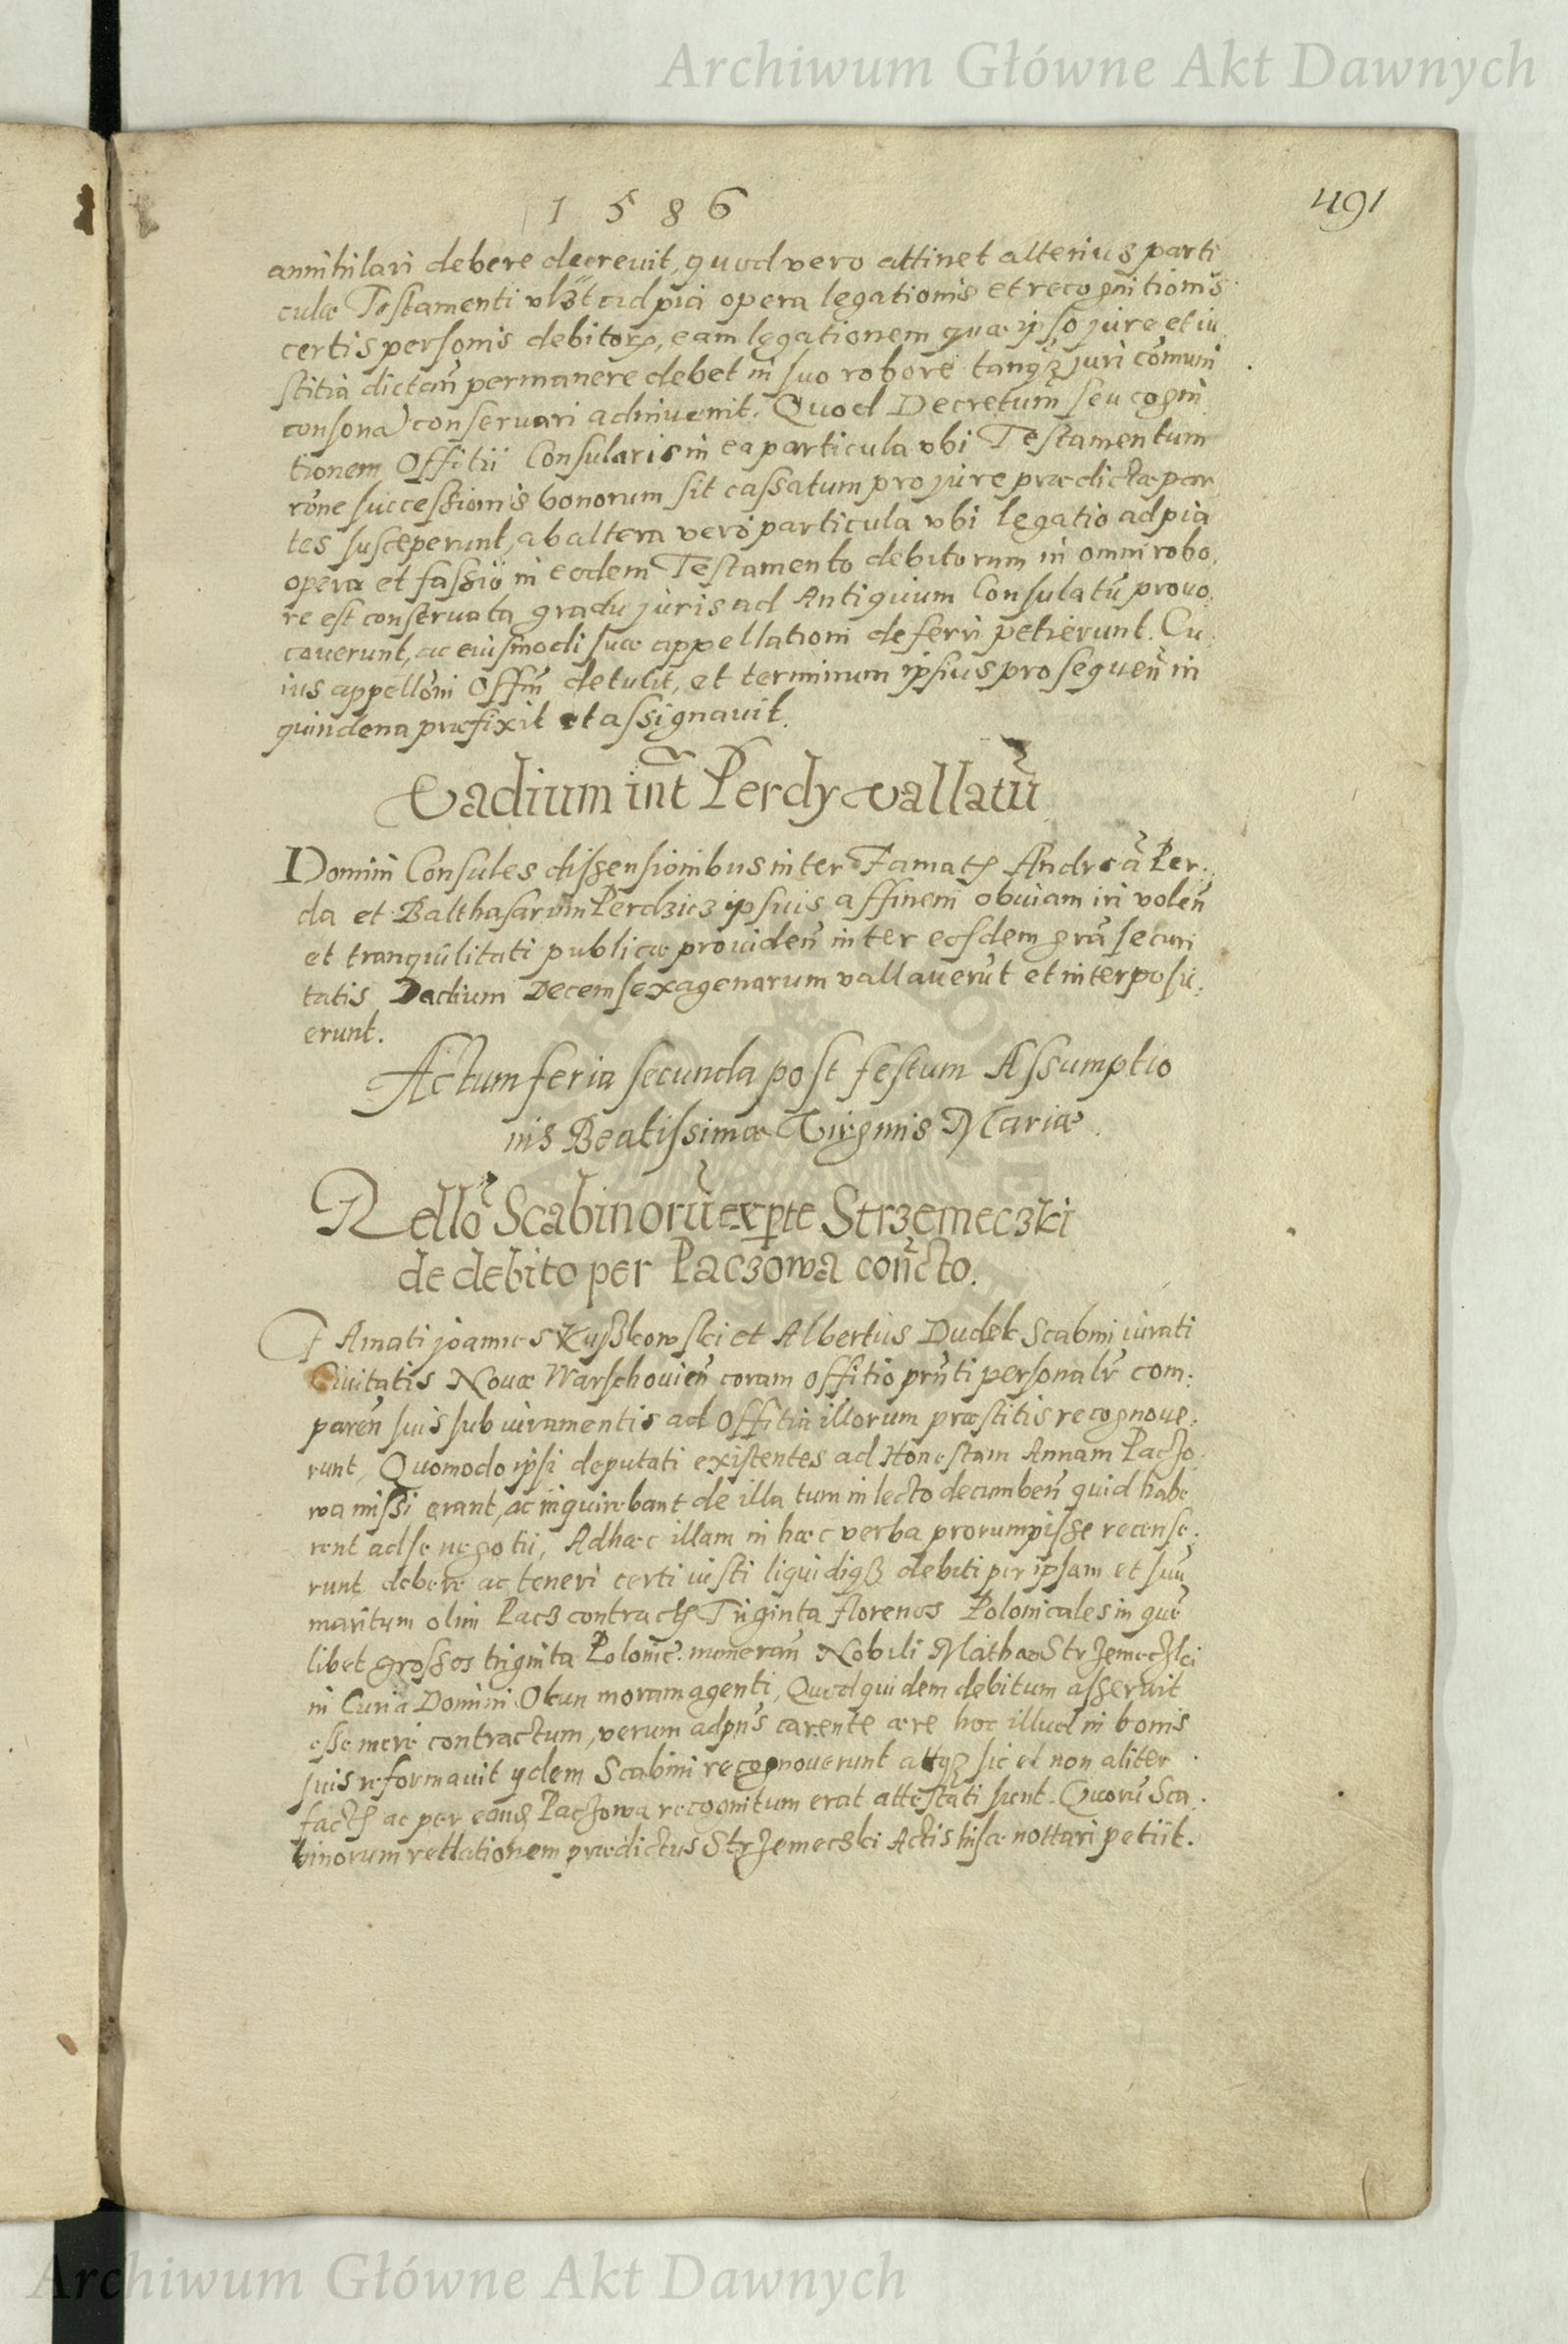 Archiwum Główne Akt Dawnych
1586
491
annihilari debere decrevit, quod vero attinet alterius parti
culæ Testamenti vlӡt ad pia opera legationis et recognitionis
certis personis debitorꝝ, eam legationem quæ ipso jure et iu
stitia dictan̄ permanere debet in suo robore tanqꝫ juri com̄uni
consona) conservari adinvenit. Quod Decretum seu cogni
tionem Offitii Consularis in ea particula vbi Testamentum
rōne successionis bonorum sit cassatum pro jure prædictæ par
tes susceperunt, ab altera vero particula vbi legatio ad pia
opera et fassio in eodem Testamento debitorum in omni robo,
re est conservata gradu juris ad Antiquum Consulatū provo,
caverunt, ac eiusmodi suæ appellationi deferri petierunt. Cu
ius appellōni Offm̄ detulit, et terminum ipsius prosequen̄ in
quindena præfixit et assignavit.
Vadium int̄ Perdy vallatū
Domini Consules dissensionibus inter Famatꝭ Andreā Per:
da et Balthasarum Perdzicz ipsius affinem obviam iri volen̄
et tranquilitati publicæ providen̄ inter eosdem grā securi
tatis Vadium Decem sexagenarum vallaverūt et interposu:
erunt.
Actum feria secunda post festum Assumptio
nis Beatissimæ Virginis Mariæ
Rellō Scabinorū ex pte Strzemeczki
de debito per Paczowa con̄cto.
FAmati joannes Kuszkowski et Albertus Dudek Scabini iurati
Civitatis Novæ Warschovien̄ coram offitio prn̄ti personalr̄ com:
paren̄ suis sub iuramentis ad Offitia illorum præstitis recognove:
runt, Quomodo ipsi deputati existentes ad Honestam Annam Paczo
wa missi erant, ac inquirebant de illa tum in lecto decumben̄ quid habe
rent ad se negotii, Adhæc illam in hæc verba prorumpisse recense:
runt debere ac teneri certi iusti liquidiqꝫ debiti per ipsam et suū
maritum olim Pacz contractꝭ Triginta florenos Polonicales in quē
libet grossos triginta Polonic̄. numeran̄ Nobili Mathæo Strzemeczki
in Curia Domini Okun moram agenti, Quod quidem debitum asseruit
esse mere contractum, verum ad pn̄s carente ære hoc illud in bonis
suis reformavit ydem Scabini recognoverunt attqꝫ sic et non aliter
factꝭ ac per eand̄ Paczowa recognitum erat attestati sunt. Quorū Sca
binorum rellationem prædictus Strzemeczki Actis hisce nottari petiit.
Archiwum Główne Akt Dawnych